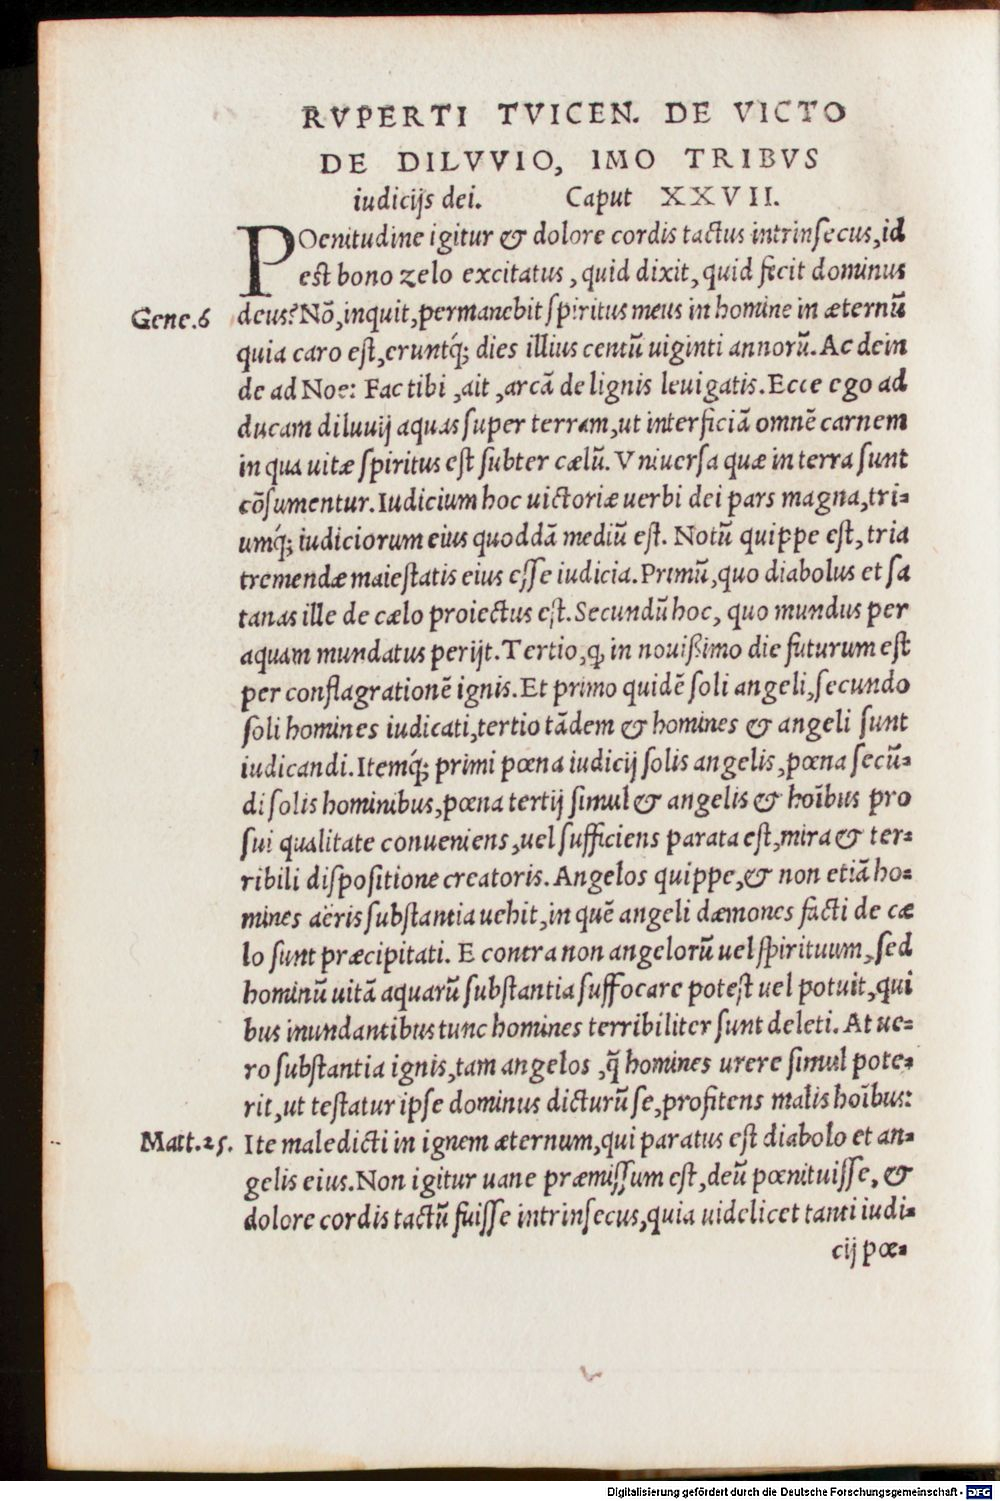 RVPERTI TVICEN. DE VICTO
DE DILVVIO, IMO TRIBVS
iudicijs dei. Caput XXVII.
POenitudine igitur & dolore cordis tactus intrinſecus, id
eſt bono zelo excitatus, quid dixit, quid fecit dominus
Gene.6 deus? Nõ, inquit, permanebit ſpiritus meus in homine in æternũ
quia caro eſt, eruntq́; dies illius centũ uiginti annorũ. Ac dein
de ad Noe: Fac tibi, ait, arcã de lignis leuigatis. Ecce ego ad
ducam diluuij aquas ſuper terram, ut interficiã omnẽ carnem
in qua uitæ ſpiritus eſt ſubter cælũ. Vniuerſa quæ in terra ſunt
cõſumentur. Iudicium hoc uictoriæ uerbi dei pars magna, tri-
umq́; iudiciorum eius quoddã mediũ eſt. Notũ quippe eſt, tria
tremendæ maieſtatis eius eſſe iudicia. Primũ, quo diabolus et ſa
tanas ille de cælo proiectus eſt. Secundũ hoc, quo mundus per
aquam mundatus perijt. Tertio, ꝙ in nouißimo die futurum eſt
per conflagrationẽ ignis. Et primo quidẽ ſoli angeli, ſecundo
ſoli homines iudicati, tertio tãdem & homines & angeli ſunt
iudicandi. Itemq́; primi pœna iudicij ſolis angelis, pœna ſecũ-
di ſolis hominibus, pœna tertij ſimul & angelis & hoĩbus pro
ſui qualitate conueniens, uel ſufficiens parata eſt, mira & ter-
ribili diſpoſitione creatoris. Angelos quippe, & non etiã ho-
mines aëris ſubſtantia uehit, in quẽ angeli dæmones facti de cæ
lo ſunt præcipitati. E contra non angelorũ uel ſpirituum, ſed
hominũ uitã aquarũ ſubſtantia ſuffocare poteſt uel potuit, qui
bus inundantibus tunc homines terribiliter ſunt deleti. At ue-
ro ſubſtantia ignis, tam angelos, q̃ homines urere ſimul pote-
rit, ut teſtatur ipſe dominus dicturũ ſe, profitens malis hoĩbus:
Matt.25. Ite maledicti in ignem æternum, qui paratus eſt diabolo et an-
gelis eius. Non igitur uane præmiſſum eſt, deũ pœnituiſſe, &
dolore cordis tactũ fuiſſe intrinſecus, quia uidelicet tanti iudi-
cij pœ-
Digitalisierung gefördert durch die Deutsche Forschungsgemeinschaft - DFG